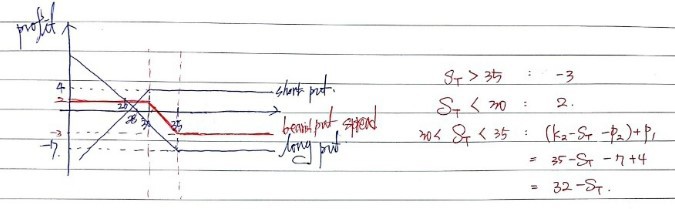 profit
4
short put.
2
28
35
bearish put spread
-3
-7
long put
S_T > 35 : -3
S_T < 30 : 2.
30 < S_T < 35 : (K₂-S_T-P₂)+P₁
= 35-S_T-7+4
= 32-S_T.